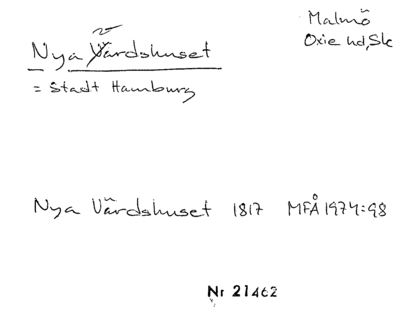 Malmö
Oxie hd, Sk
Nya Värdshuset
= Stadt Hamburg
Nya Värdshuset 1817 MFÅ 1974:98
Nr 21462